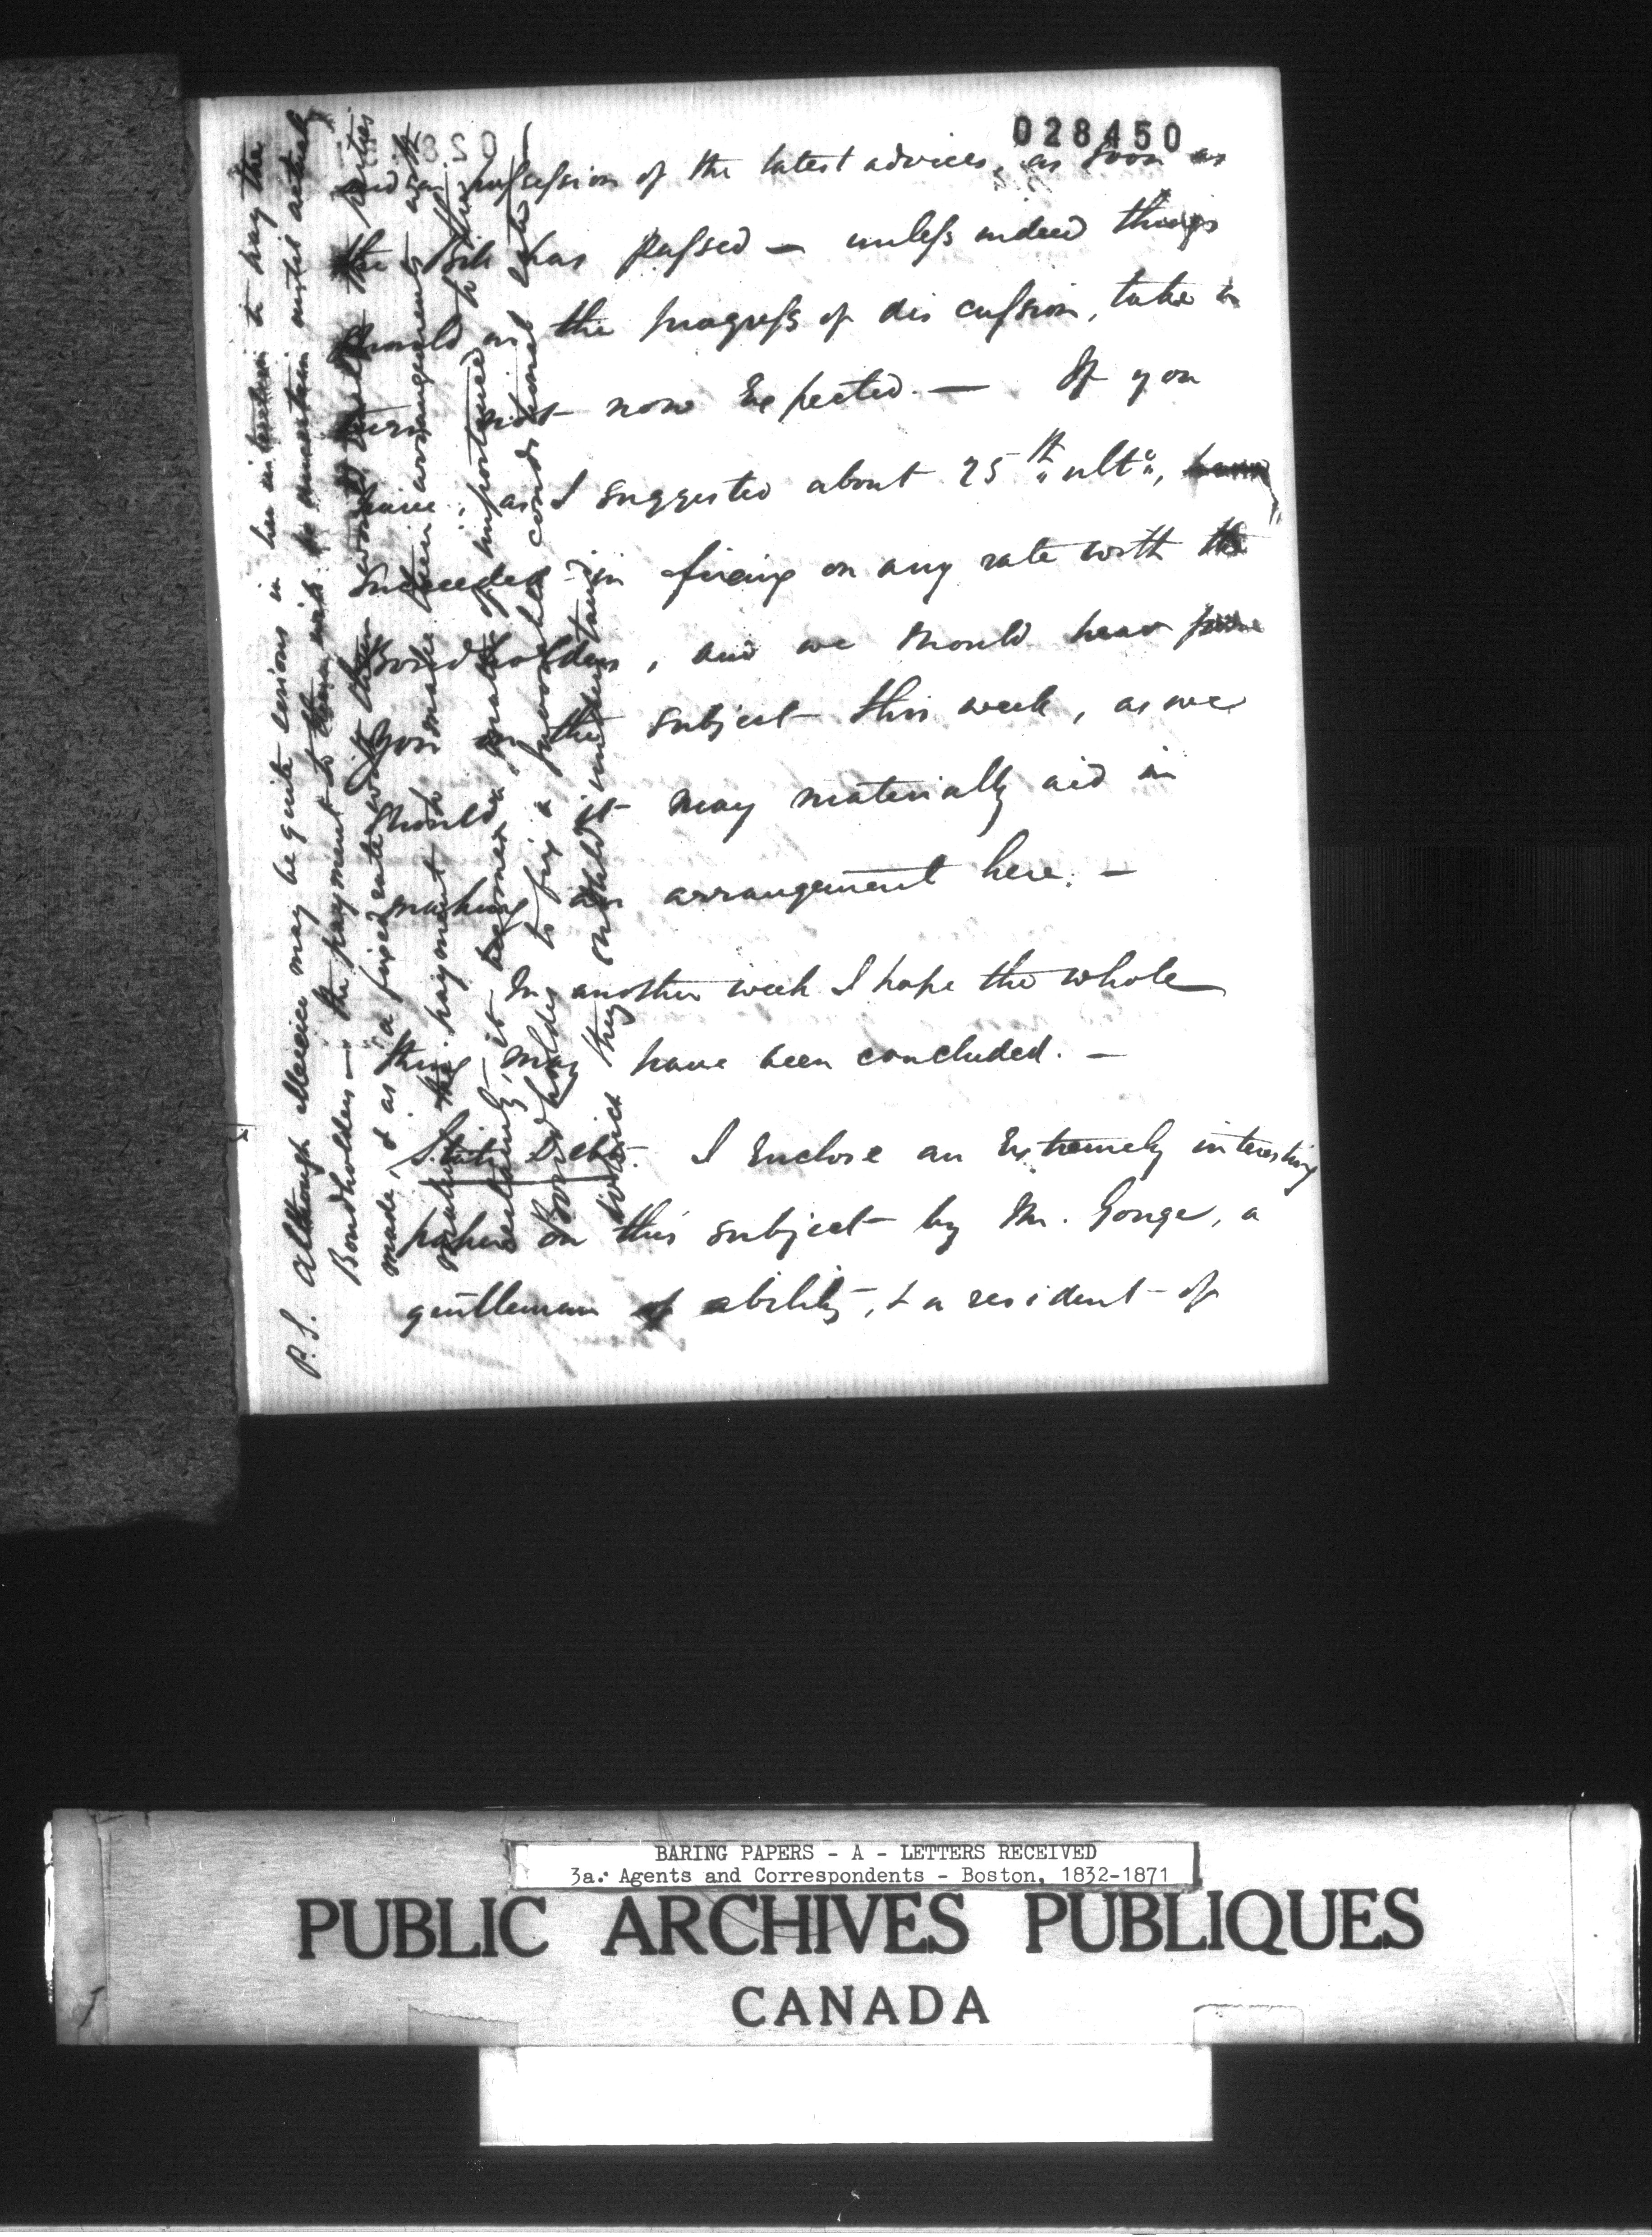 028450
possession of the latest advices, as soon as
the Bill has passed — unless indeed things
should in the progress of discussion, take a
turn not now Expected. — If you
have, as I suggested about 25th ulto,
succeeded in fixing on any rate with the
Bondholders, and we should hear from
you on the subject this week, as we
should, it may materially aid in
making an arrangement here. —
In another week I hope the whole
thing may have been concluded. —
State Debts. I Enclose an Extremely interesting
paper on this subject by Mr. Gouge, a
gentleman of ability, & a resident of
P.S. Although Mexico may be quite serious in her intention to pay the
Bondholders — the payment to them is uncertain until actually
made, & as a fixed rate with them would the parties
making the payment to make their arrangements with
certainty, it becomes a matter of importance to the
Bondholders to fix a favorable conditional rate
which they should understand
BARING PAPERS - A - LETTERS RECEIVED
3a. Agents and Correspondents - Boston, 1832-1871
PUBLIC ARCHIVES PUBLIQUES
CANADA